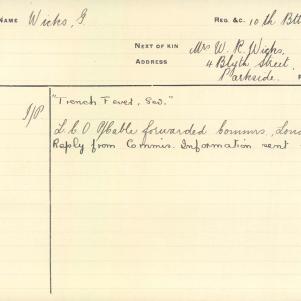 NAME Wicks, G. REG. &C. 10th Btt
NEXT OF KIN Mrs W. R. Wicks,
ADDRESS 4 Blyth Street
Parkside.
"Trench Fever, Sev."
L.C.O Cable forwarded Commrs, Lond
Reply from Commis. Information sent